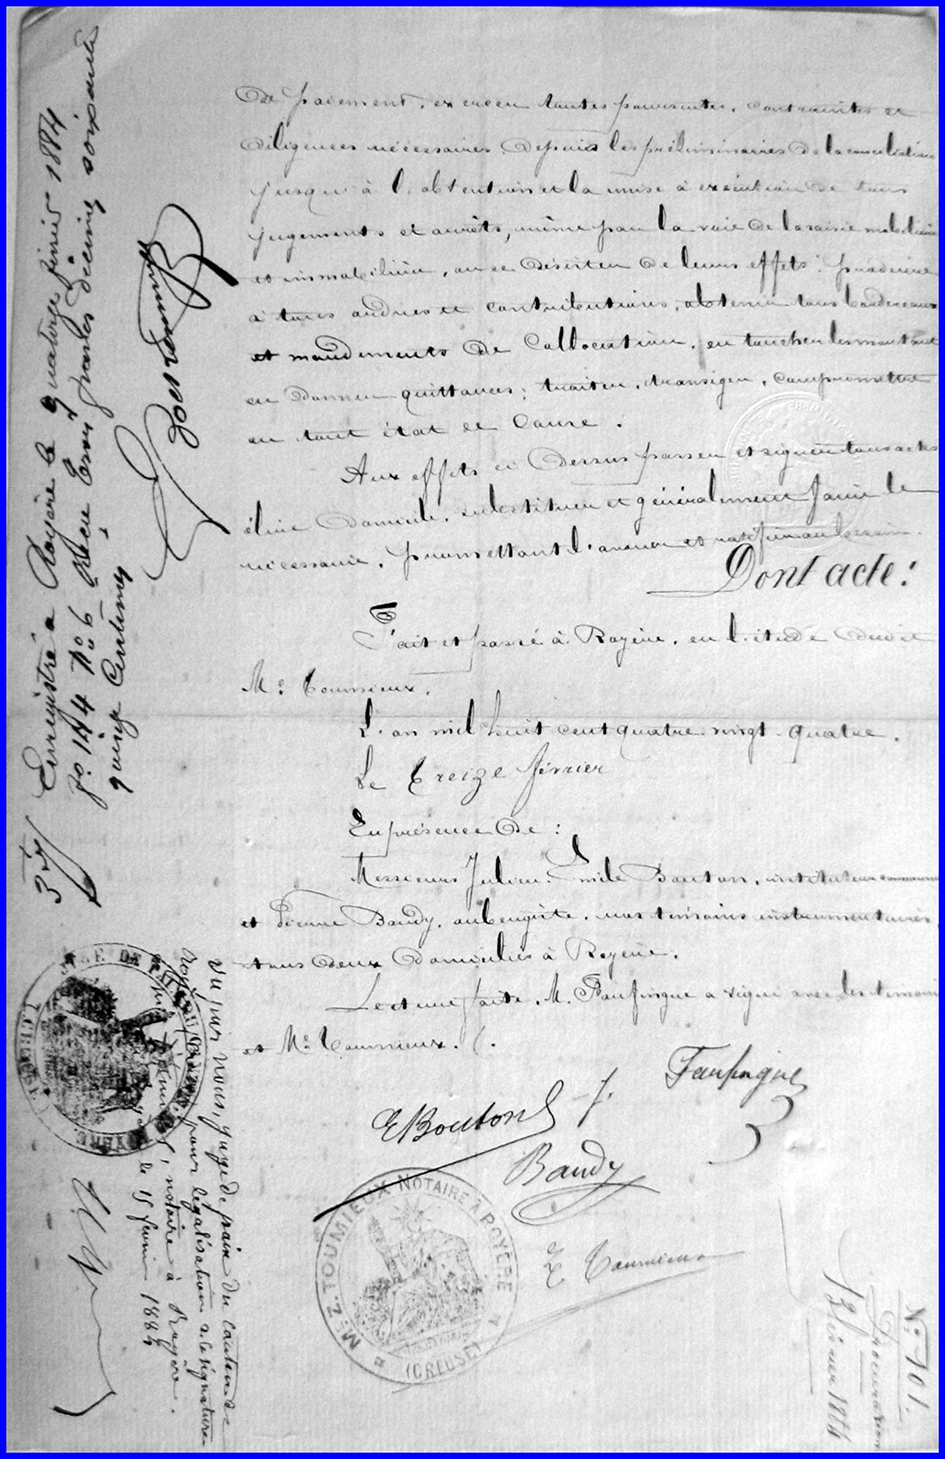 de paiement, exercer toutes poursuites, contraintes et
diligences nécessaires depuis les préliminaires de la conciliation
jusqu'à l'obtention et la mise à exécution de tous
jugements et arrêts, même par la voie de la saisie mobilière
et immobilière, ou se désister de leurs effets; produire
à tous ordres et contributions, obtenir tous bordereaux
et mandements de collocution, en toucher les montants
en donner quittances; traiter, transiger, compromettre
en tout état de cause.
Aux effets ci dessus passer et signer tous actes
élire domicile, substituer et généralement faire le
nécessaire, promettant l'avouer et ratifier au besoin.
Dont acte:
Fait et passé à Royère, en l'étude dudit
Me Toumieux.
L'an mil huit cent quatre vingt-quatre.
Le treize février
En présence de:
Messieurs Julien Emile Bouton, instituteur communal
et Baudy, aubergiste, nos témoins instrumentaires
tous deux domiciliés à Royère.
Lecture faite, M. Faufingue a signé avec les témoins
et Me Toumieux.
Faufingue
EBouton
Baudy
Z Toumieux
Me Z. TOUMIEUX NOTAIRE A ROYÈRE
(CREUSE)
Enregistré à Royère le quatorze février 1884
fo 144 No 6 Reçu trois francs décime soixante
quinze centimes
3 75
Vu par nous, juge de paix du canton de
Royère (Creuse), pour légalisation de la signature
de Me Toumieux, notaire à Royère.
le 15 février 1884
No 101.
Procuration
13 février 1884